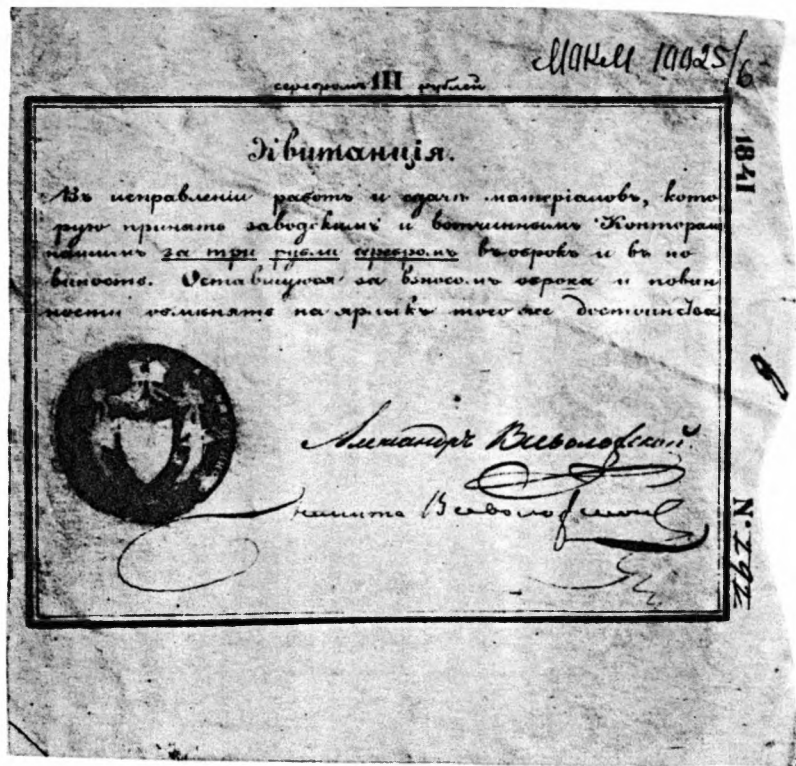 МАКМ 10025/6
серебромъ III рублей
1841
Квитанція.
Въ исправленіи работъ и сдачѣ матеріаловъ, кото
рую принять заводскимъ и вотчиннымъ Конторам
нашимъ за три рубли серебромъ въ оброкъ и въ по
винность. Оставшуюся за взносомъ оброка и повин
ности обмѣнять на ярлыкъ того же достоинства
Александръ Всеволожской
Никита Всеволожской
№ 292